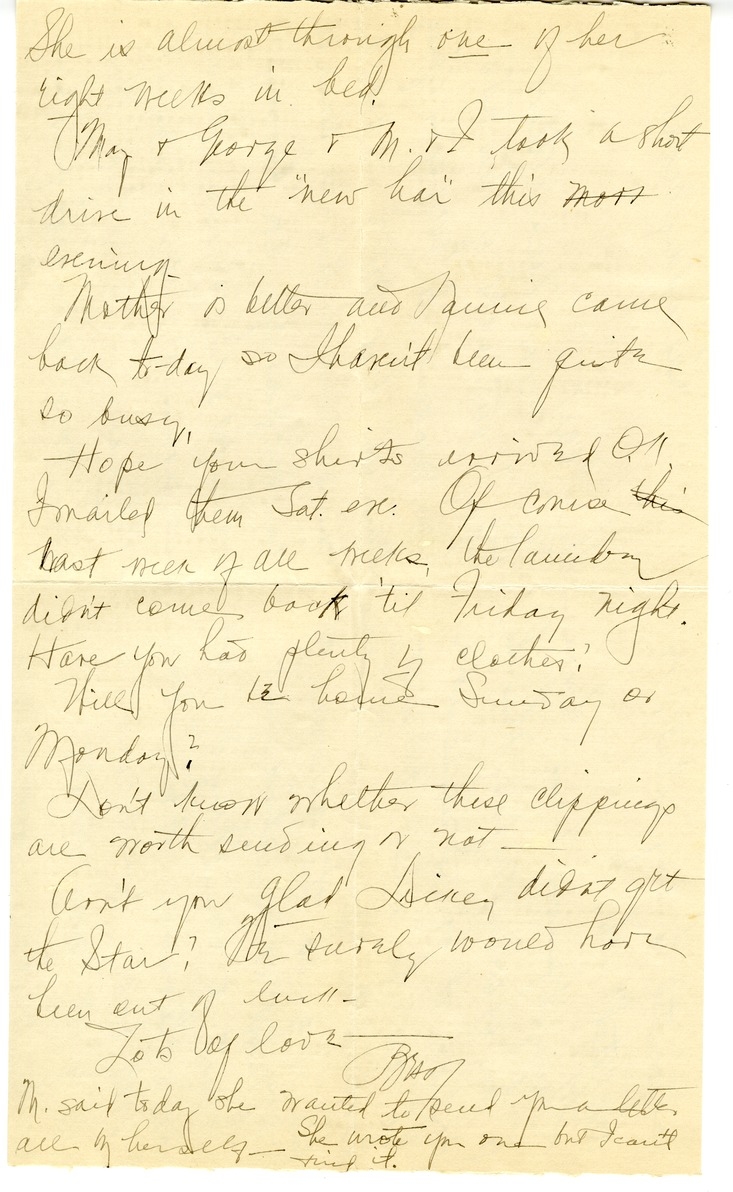 She is almost through one of her
eight weeks in bed.
May & George & M. & I took a short
drive in the "new car" this morn
evening.
Mother is better and came
back to-day so I haven't been quite
so busy.
Hope your shirts arrived O.K.
I mailed them Sat. eve. Of course this
last week of all weeks, the laundry
didn't come back 'til Friday night.
Have you had plenty of clothes?
Will you be home Sunday or
Monday?
Don't know whether these clippings
are worth sending or not —
Aren't you glad Dickey didn't get
the Star? We surely would have
been out of luck —
Lots of love —
Bess
M. said today she wanted to send you a letter
all by herself — She wrote you one but I can't
find it.